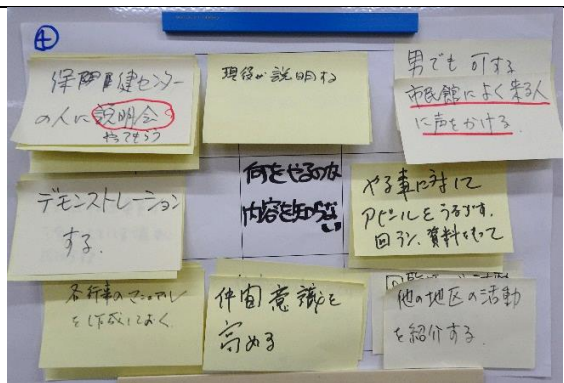 ④
保関保健センター
の人に説明会
やってもらう
現役が説明する
男でも可する
市民館によく来る人
に声をかける
デモンストレーション
する.
何をやるのか
内容を知らない
やる事に対して
アピールを
回ラン、資料をもって
各行事のマニュアル
を作成しておく
仲間意識を
高める
他の地区の活動
を紹介する.